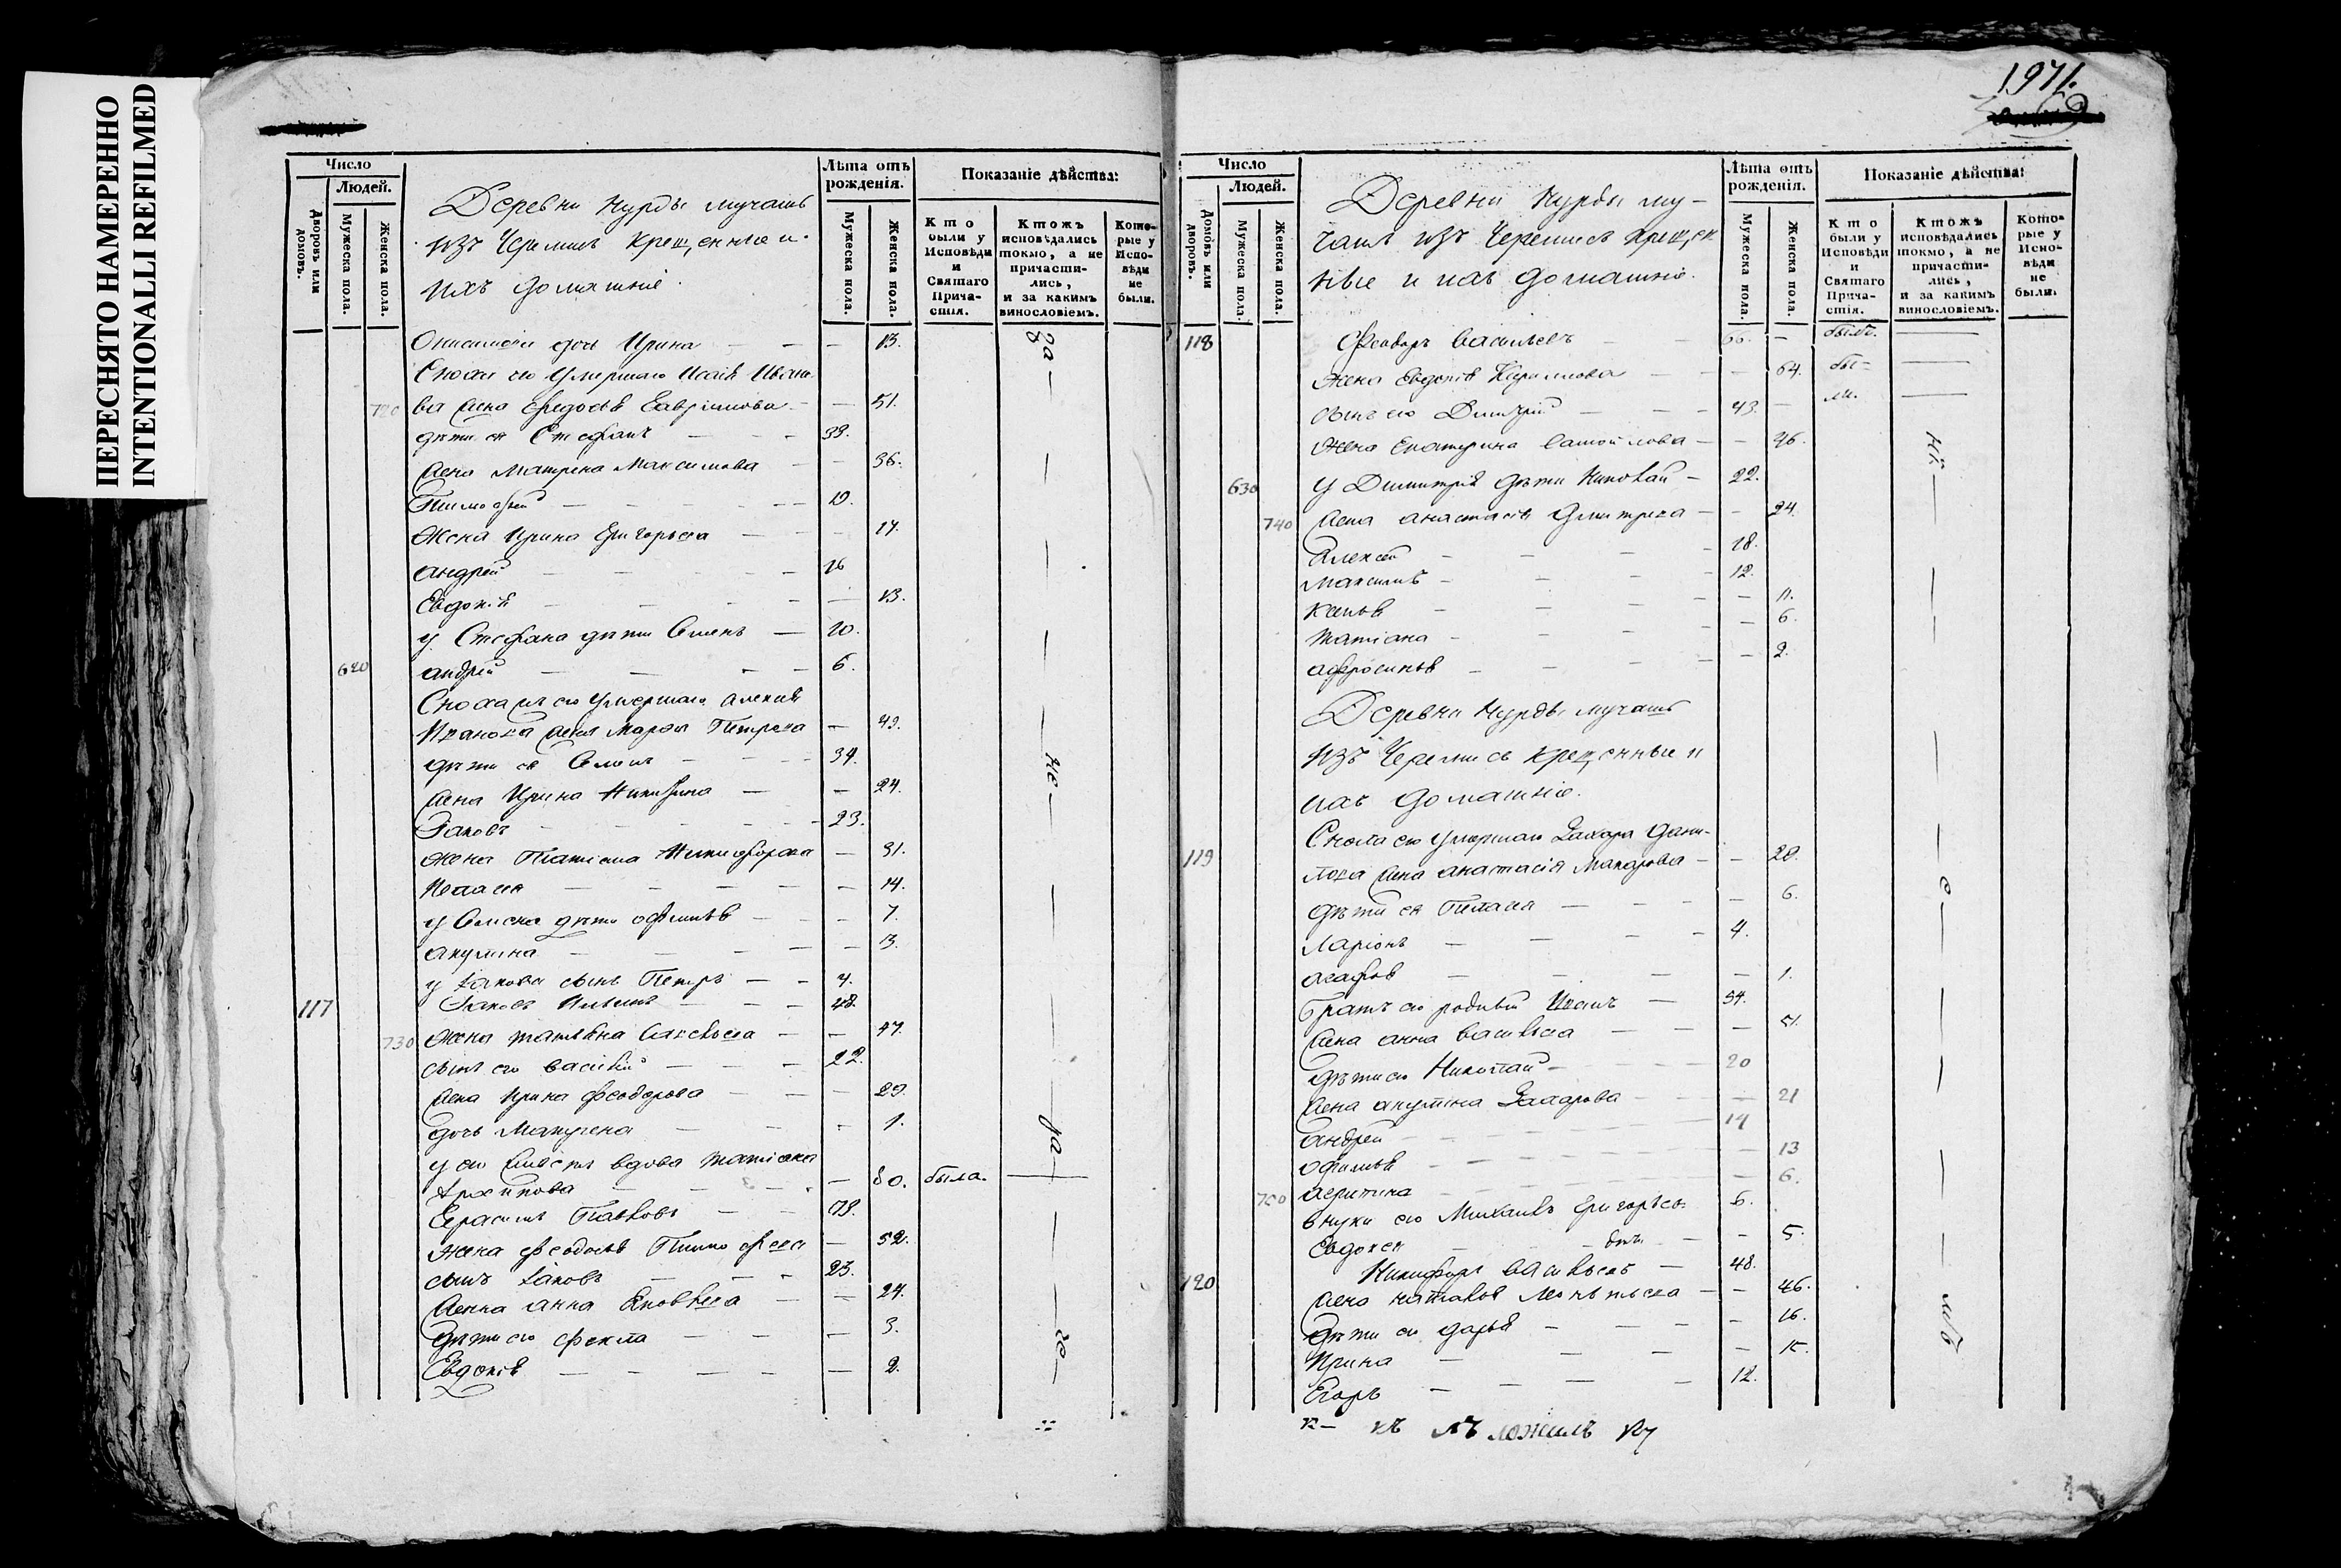 ПЕРЕСНЯТО НАМЕРЕННО
INTENTIONALLI REFILMED
Число
Людей.
Дворовъ или домовъ.
Мужеска пола.
Женска пола.
Деревни Курды мучашъ
изъ Черемисъ крещенные и
ихъ домашніе.
Лѣта отъ рожденія.
Мужеска пола.
Женска пола.
Показаніе дѣйства:
Кто были у Исповѣди и Святаго Прича-стія.
Ктожъ исповѣдались токмо, а не причасти-лись, и за какимъ винословіемъ.
Кото-рые у Испо-вѣди не были.
дочь Ирина — — — 13.
Сноха его умершаго Исаія Ивано
720 ва жена Федосья — 51.
дѣти ея Стефанъ — — 39.
жена Матрена Максимова — — 36.
Тимофей — — — 19.
Жена Ирина Григорьева — — 17.
Андрей — — — 16
Евдокія — — — 13.
у Стефана дѣти Семенъ — 10.
620 Андрей — — — 6.
Сноха его умершаго Алексія
Иванова жена Марфа Петрова — 49.
дѣти ея Семенъ — — 34.
жена Ирина Никитина — — 24.
Іаковъ — — — 23.
жена Татіана Никифорова — 31.
Пелагея — — — 14.
у Семена дѣти — — 7.
Акулина — — — 13.
у Іакова сынъ Петръ — — 4.
117 Іаковъ — — 48.
730 Жена Татьяна Савельева — — 47.
сынъ его Василій — — 22.
жена Ирина Феодорова — — 29.
дочь — — 1.
у его вдова Татіана
Архипова — — 80. была.
Герасимъ Павловъ — —
жена Феодосья Тимофеева — 52.
сынъ Іаковъ — — 23.
женка Анна Яковлева — — 24.
дѣти его Фекла — — 3.
Евдокія — — — 2.
не
1971.
Число
Людей.
Домовъ или дворовъ.
Мужеска пола.
Женска пола.
Деревни Курды му-
чашъ изъ Черемисъ крещен
ные и ихъ домашніе.
Лѣта отъ рожденія.
Мужеска пола.
Женска пола.
Показаніе дѣйства:
Кто были у Исповѣди и Святаго Прича-стія.
Ктожъ исповѣдались токмо, а не причасти-лись, и за какимъ винословіемъ.
Кото-рые у Испо-вѣди не были.
118 Феодоръ Васильевъ — былъ.
Жена Евдокія Кириллова — — 64. бы-
сынъ его Димитрій — — 43. — ли.
Жена Екатерина Самойлова — — 46.
630 у Димитрія дѣти Николай — 22.
740 жена Анастасія Дмитріева — — 24.
Алексей — — — 18.
Максимъ — — — 12.
— — — 11.
Татіана — — — 6.
Афросинья — — — 2.
Деревни Курды мучашъ
изъ Черемисъ крещенные и
ихъ домашніе.
Сноха его умершаго Захара Дани-
119 лова жена Анастасія Макарова — — 28.
дѣти ея Пелагея — — 6.
Ларіонъ — — — 4.
Агафья — — — 1.
Братъ его родный Иванъ — 54.
жена Анна Васильева — — 51.
дѣти его Николай — — 20
жена Акулина Захарова — — 21
Андрей — — — 14
Офимья — — — 13
— — — 6.
внуки его Михаилъ Григорьевъ 6.
Евдокея — — 5.
120 Никифоръ Васильевъ — 48.
жена Наталья Леонтьева — — 46.
дѣти его Дарья — — — 16.
Ирина — — —
Егоръ — — — 12.